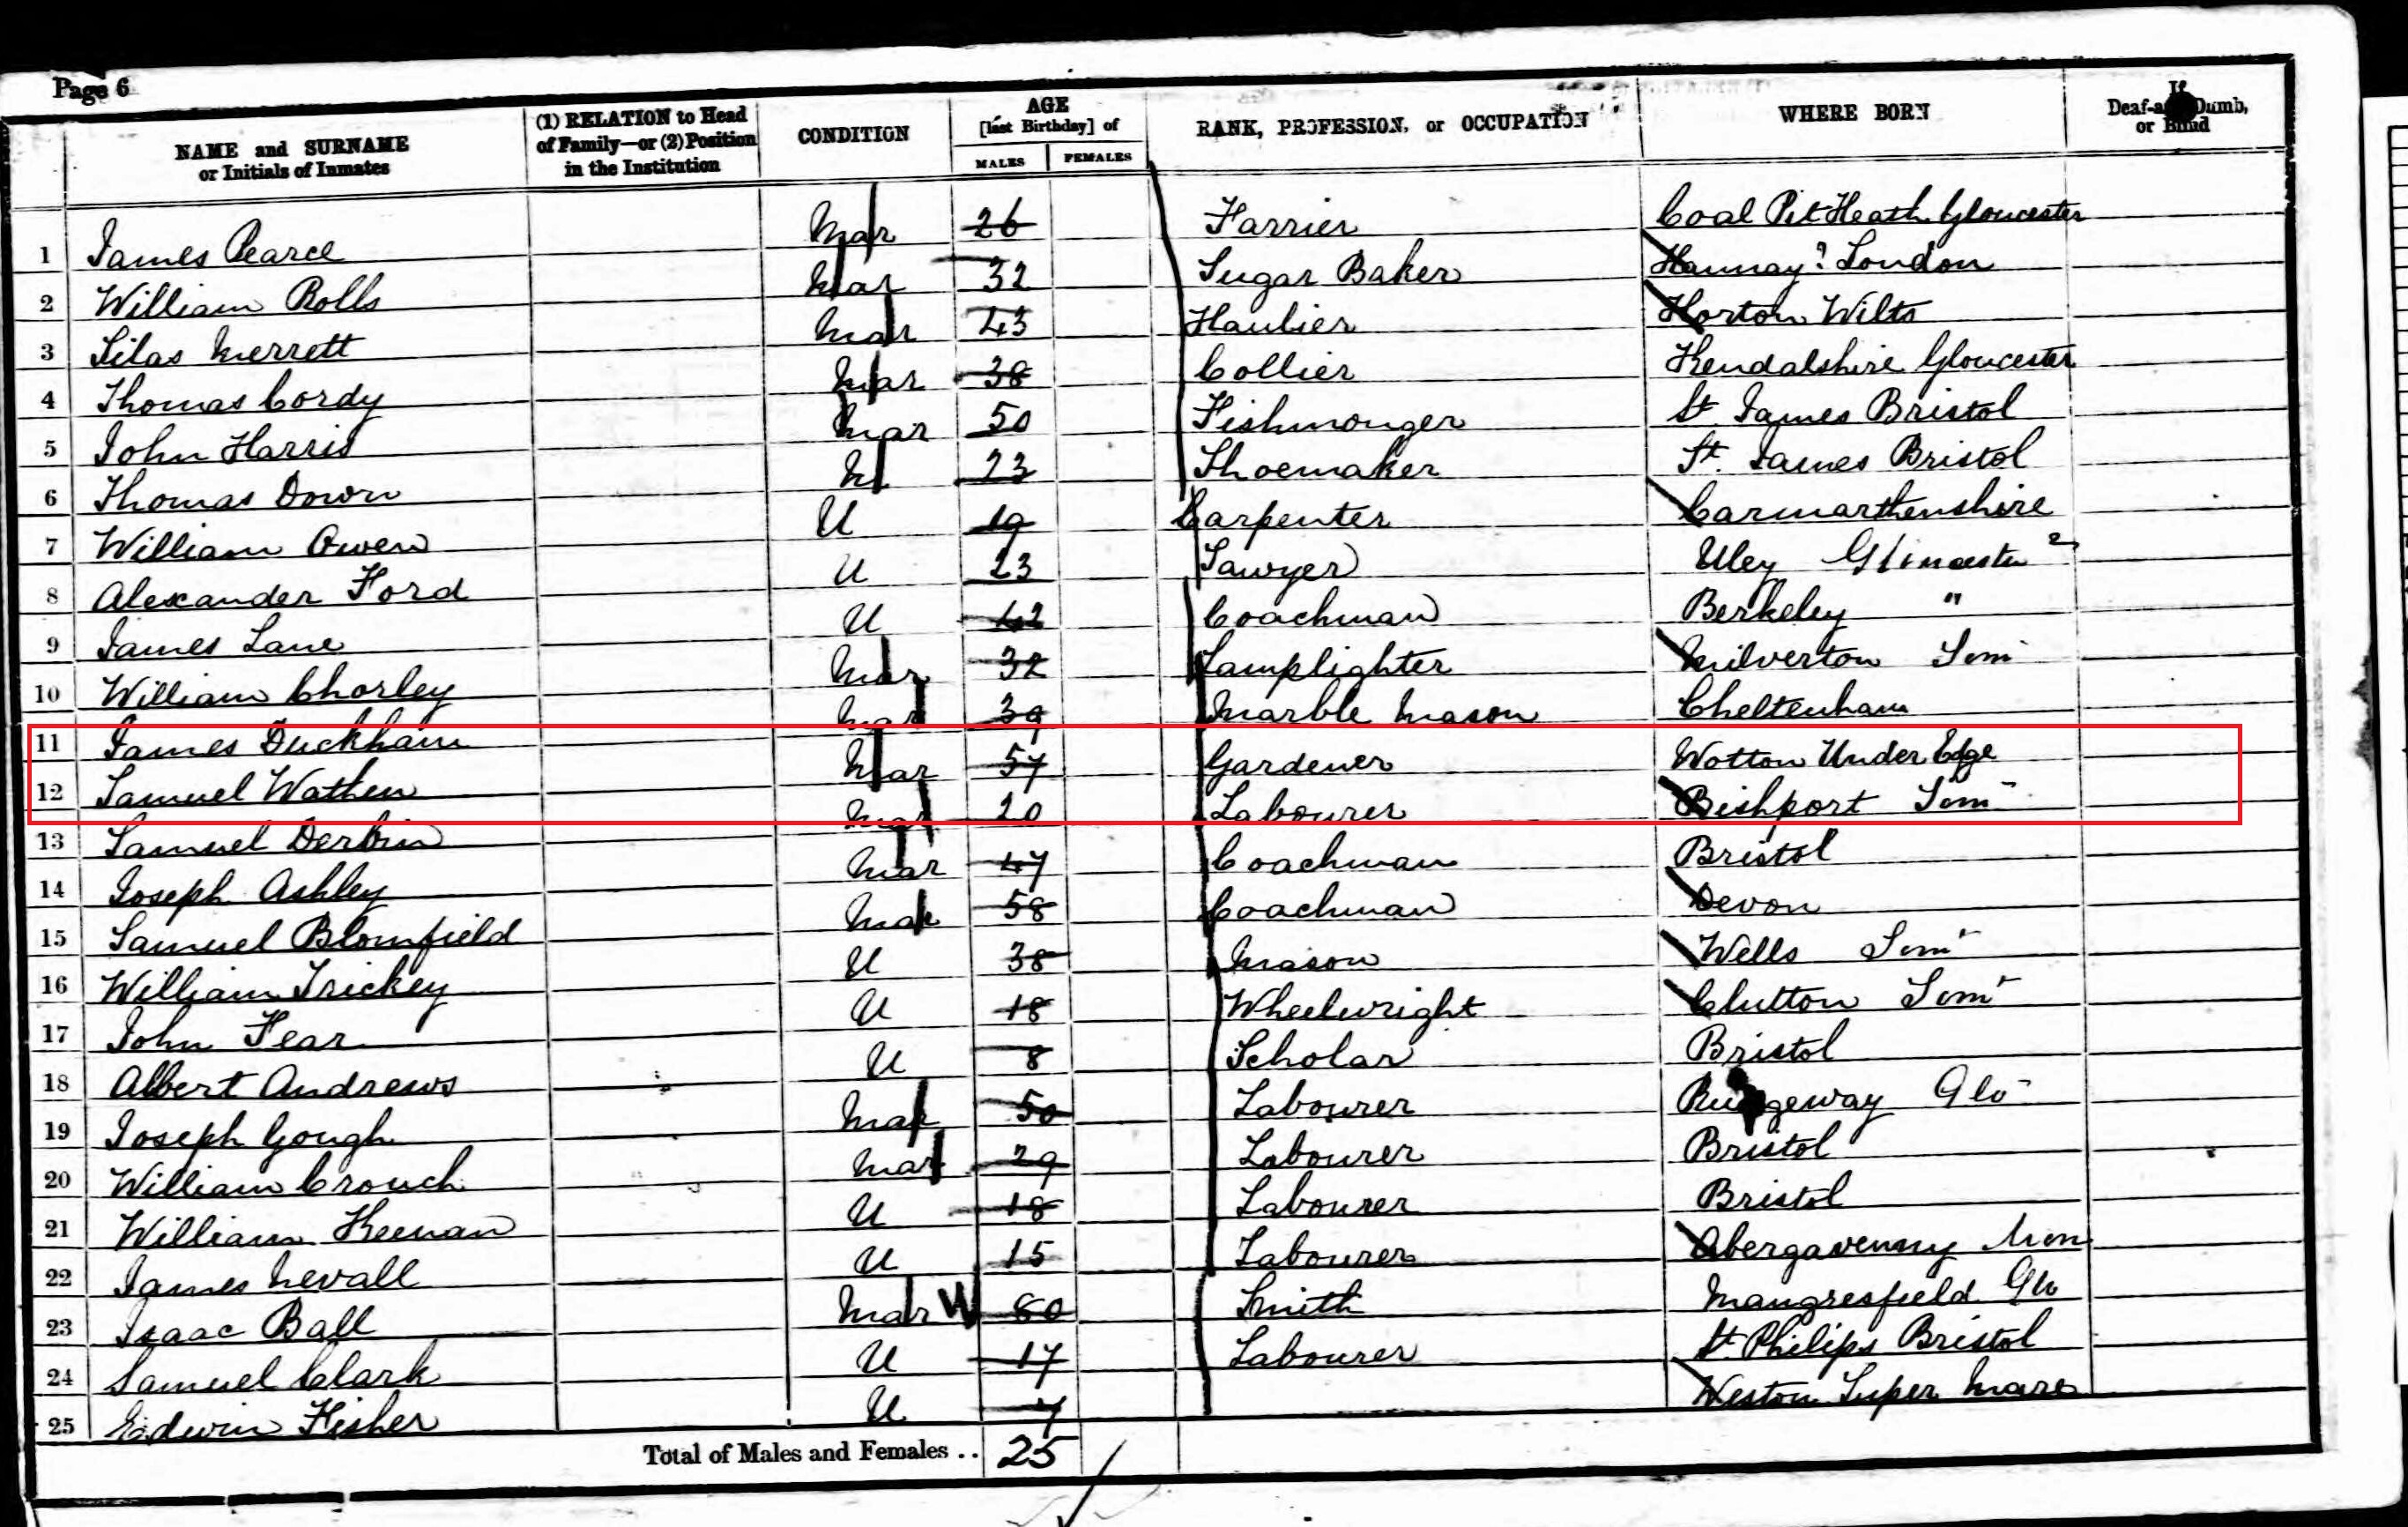 Page 6
NAME and SURNAME or Initials of Inmates
(1) RELATION to Head of Family—or (2) Position in the Institution
CONDITION
AGE [last Birthday] of
MALES FEMALES
RANK, PROFESSION, or OCCUPATION
WHERE BORN
If Deaf-and-Dumb, or Blind
1 James Pearce Mar 26 Farrier Coal Pit Heath Gloucester
2 William Rolls Mar 32 Sugar Baker London
3 Silas Merrett Mar 43 Haulier Horton Wilts
4 Thomas Cordy Mar 38 Collier Kendalshire Gloucester
5 John Harris Mar 50 Fishmonger St. James Bristol
6 Thomas Down M 23 Shoemaker St. James Bristol
7 William Owen U 19 Carpenter Carmarthenshire
8 Alexander Ford U 23 Sawyer Uley Gloucester
9 James Lane U 42 Coachman Berkeley "
10 William Chorley Mar 32 Lamplighter Milverton Som
11 James Duckham Mar 39 Marble Mason Cheltenham
12 Samuel Wathen Mar 57 Gardener Wotton Under Edge
13 Samuel Derbin Mar 20 Labourer Bishport Som
14 Joseph Ashley Mar 47 Coachman Bristol
15 Samuel Blomfield Mar 58 Coachman Devon
16 William Trickey U 38 Mason Wells Somt
17 John Fear U 18 Wheelwright Clutton Somt
18 Albert Andrews U 8 Scholar Bristol
19 Joseph Gough Mar 50 Labourer Glo
20 William Crouch Mar 29 Labourer Bristol
21 William Keenan U 18 Labourer Bristol
22 James Nevall U 15 Labourer Abergavenny Mon
23 Isaac Ball Mar W 80 Smith Mangresfield Glo
24 Samuel Clark U 17 Labourer St. Philips Bristol
25 Edwin Fisher U 7 Weston Super Mare
Total of Males and Females .. 25